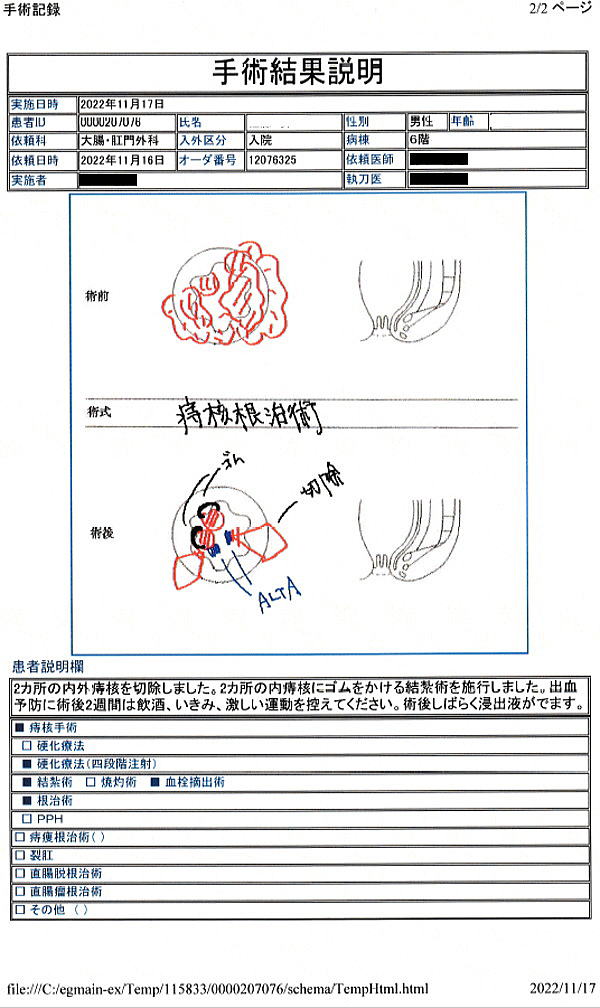 手術記録 2/2 ページ
手術結果説明
実施日時 2022年11月17日
患者ID 0000207076 氏名 性別 男性 年齢
依頼科 大腸・肛門外科 入外区分 入院 病棟 6階
依頼日時 2022年11月16日 オーダ番号 12076325 依頼医師
実施者 執刀医
術前
術式 痔核根治術
ゴム
切除
術後
ALTA
患者説明欄
2カ所の内外痔核を切除しました。2カ所の内痔核にゴムをかける結紮術を施行しました。出血
予防に術後2週間は飲酒、いきみ、激しい運動を控えてください。術後しばらく浸出液がでます。
■ 痔核手術
□ 硬化療法
■ 硬化療法(四段階注射)
■ 結紮術 □ 焼灼術 ■ 血栓摘出術
■ 根治術
□ PPH
□ 痔瘻根治術( )
□ 裂肛
□ 直腸脱根治術
□ 直腸瘤根治術
□ その他 ( )
file:///C:/egmain-ex/Temp/115833/0000207076/schema/TempHtml.html 2022/11/17